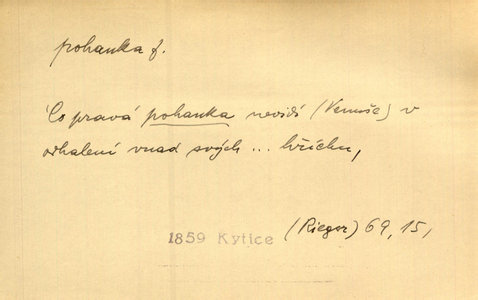 pohanka f.
Co pravá pohanka nevidí (Venuše) v
odhalení vnad svých ... hříchu,
(Rieger) 69, 15,
1859 Kytice